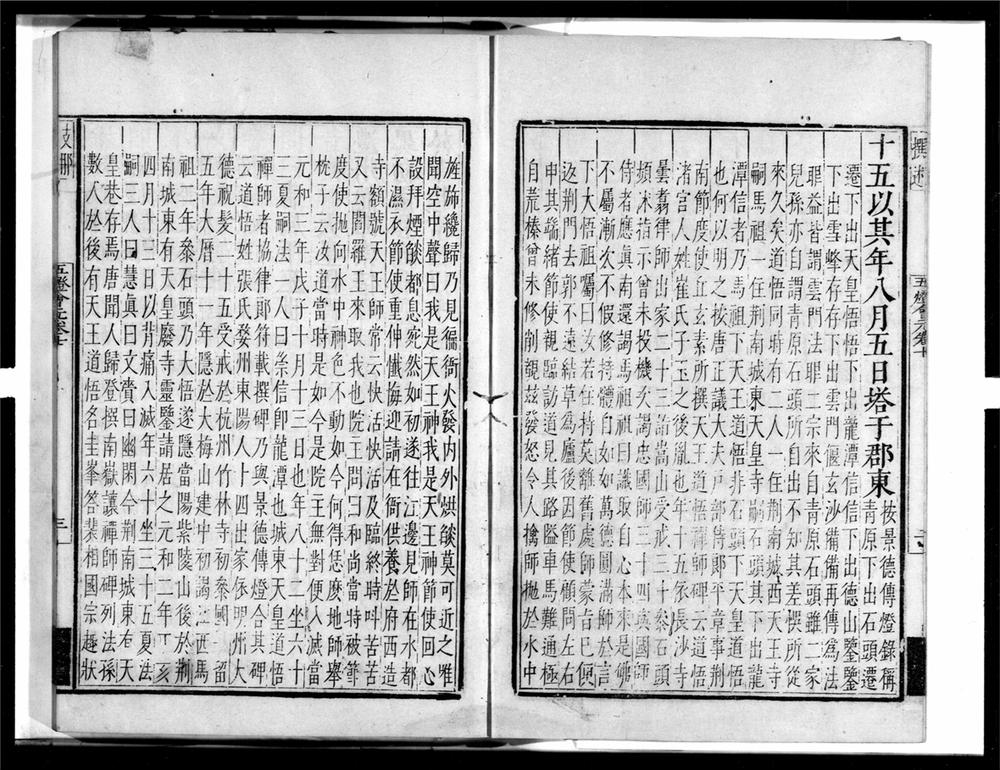 十五以其年八月五日塔于郡東按景德傳燈錄稱
青原下出石頭遷
遷下出天皇悟悟下出龍潭信信下出德山鑒鑒
下出雪峰存存下出雲門偃玄沙備備再傳為法
眼益皆謂雲門法眼二宗來自青原石頭雖二家
兒孫亦自謂青原石頭所自出不知其差悞所從
來久矣道悟同時有二人一住荊南城西天王寺
嗣馬祖一住荊南城東天皇寺嗣石頭其下出龍
潭信者乃馬祖下天王道悟非石頭下天皇道悟
也何以明之按唐正議大夫戶部侍郎平章事荊
南節度使丘玄素所撰天王道悟禪師碑云道悟
渚宮人姓崔氏子玉之後胤也年十五依長沙寺
曇翥律師出家二十三詣嵩山受戒三十參石頭
頻沐指示曾未投機次謁忠國師三十四與國師
侍者應真南還謁馬祖祖曰識取自心本來是佛
不屬漸次不假修持體自如如萬德圓滿師於言
下大悟祖囑曰汝若住持莫離舊處師蒙旨已便
返荊門去郭不遠結草為廬後因節使顧問左右
申其端緒節使親臨訪道見其路隘車馬難通極
目荒榛曾未修削覩茲發怒令人擒師拋於水中
旌旆纔歸乃見徧衙火發內外烘燄莫可近之唯
聞空中聲曰我是天王神我是天王神節使回心
設拜煙燄都息宛然如初遂往江邊見師在水都
不濕衣節使重伸懺悔迎請在衙供養於府西造
寺額號天王師常云快活快活及臨終時叫苦苦
又云閻羅王來取我也院主問曰和尚當時被節
度使拋向水中神色不動如今何得恁麼地師舉
枕子云汝道當時是如今是院主無對便入滅當
元和三年戊子十月十三日也年八十二坐六十
三夏嗣法一人曰崇信即龍潭也城東天皇道悟
禪師者協律郎符載撰碑乃與景德傳燈合其碑
云道悟姓張氏婺州東陽人十四出家依明州大
德祝髮二十五受戒於杭州竹林寺初參國一留
五年大曆十一年隱於大梅山建中初謁江西馬
祖二年參石頭乃大悟遂隱當陽紫陵山後於荊
南城東有天皇廢寺靈鑒請居之元和二年丁亥
四月十三日以背痛入滅年六十坐三十五夏法
嗣三人曰慧真曰文賁曰幽閑今荊南城東有天
皇巷存焉唐聞人歸登撰南嶽讓禪師碑列法孫
數人於後有天王道悟名圭峯答裴相國宗趣狀
五燈會元卷七
三